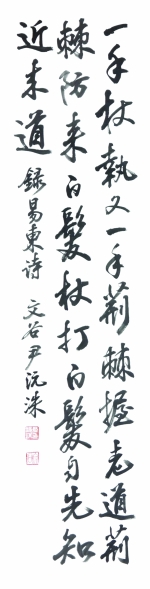 一手杖執又一手荊棘握老道荊
棘防来白髮杖打白髮自先知
近来道 錄易東詩 文谷尹沅洙